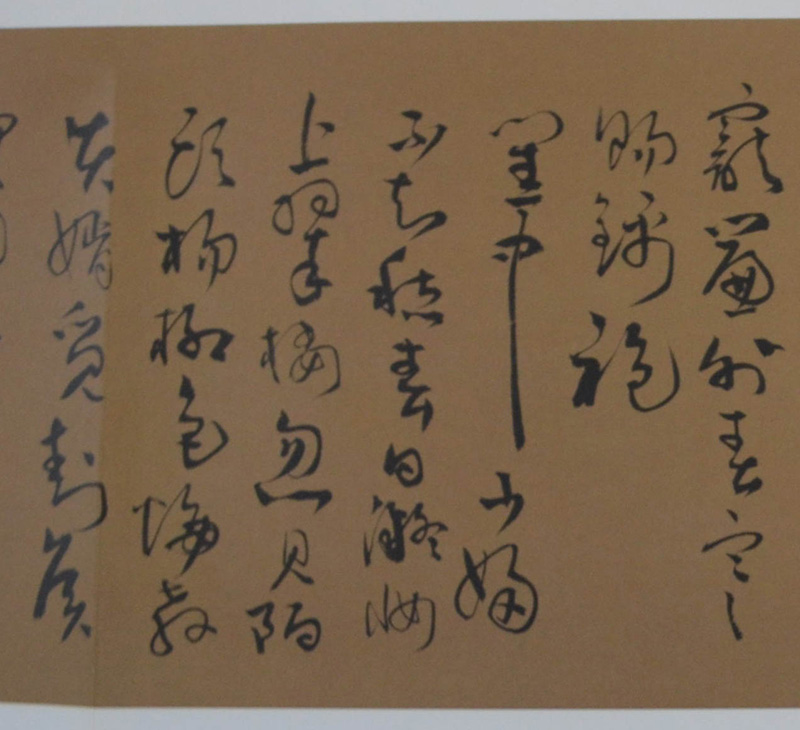 寵簾外春寒
賜錦袍
閨中少婦
不知愁春日凝妝
上翠樓忽見陌
頭楊柳色悔教
夫婿覓封侯